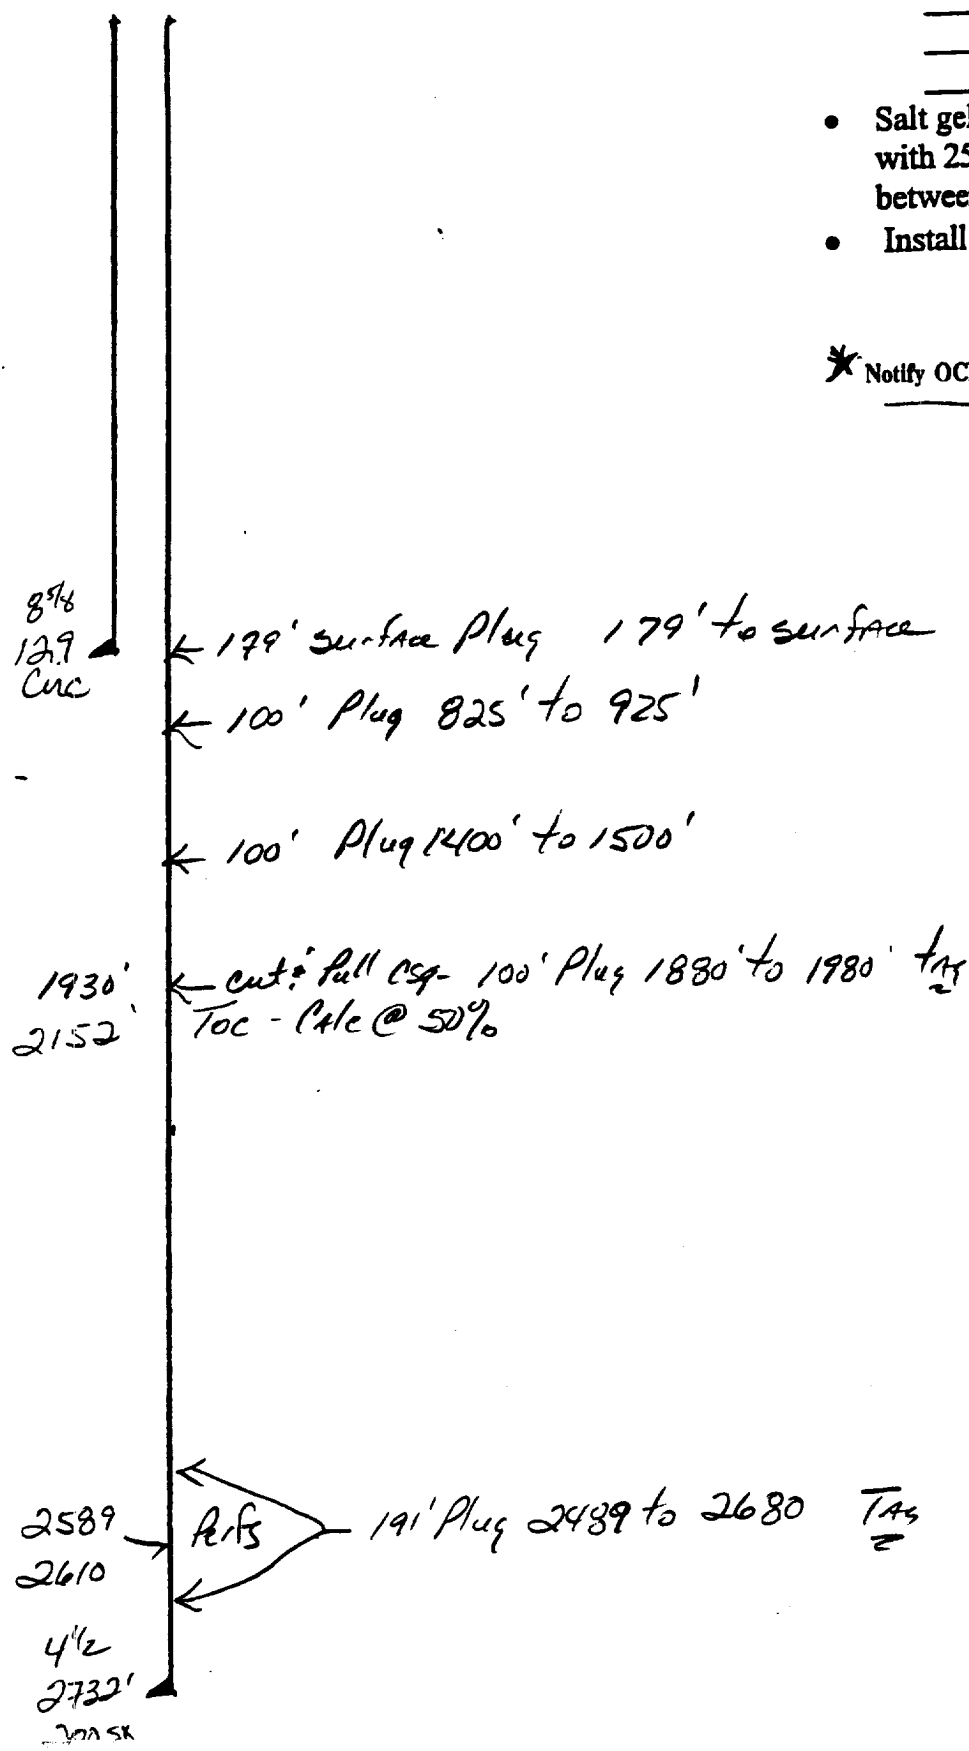 • Salt gel
with 25
between
• Install
* Notify OC
8 5/8
129
Circ
179' surface Plug 179' to surface
100' Plug 825' to 925'
100' Plug 1400' to 1500'
1930'
cut & Pull csg- 100' Plug 1880' to 1980' tag
2152'
Toc - Calc @ 50%
2589
2610
Perfs
191' Plug 2489 to 2680 TAG
4 1/2
2732'
SX